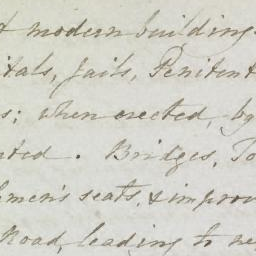 t modern building
itals, Jails, Penitent
s; when erected, by
nted. Bridges, To
lemen's seats, & improv
Road, leading to ne